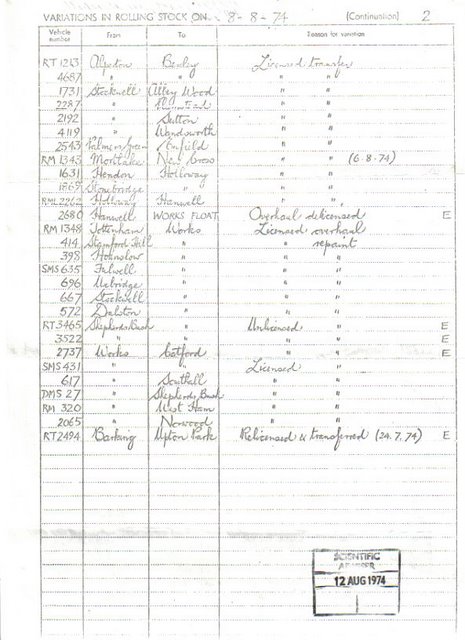 VARIATIONS IN ROLLING STOCK ON 8-8-74 (Continuation) 2
Vehicle number From To Reason for variation
RT 1213 Alperton Bexley Licensed transfer
4687 " " " "
1731 Stockwell Abbey Wood " "
2287 " " "
2192 " Sutton " "
4119 " Wandsworth " "
2543 Palmers Green Enfield " "
RM 1343 Mortlake New Cross " " (6.8.74)
1631 Hendon Holloway " "
1869 Stonebridge " " "
RML 2262 Holloway Hanwell " "
2680 Hanwell WORKS FLOAT Overhaul delicensed E
RM 1348 Tottenham Works Licensed overhaul
414 Stamford Hill " " repaint
398 Hounslow " " "
SMS 635 Fulwell " " "
696 Uxbridge " " "
667 Stockwell " " "
572 Dalston " " "
RT 3465 Shepherds Bush " Unlicensed " E
3522 " " " " E
2737 Works Catford " " E
SMS 431 " " Licensed "
617 " Southall " "
DMS 27 " Shepherds Bush " "
RM 320 " West Ham " "
2065 " Norwood " "
RT 2494 Barking Upton Park Relicensed & transferred (24.7.74) E
SCIENTIFIC
ADVISER
12 AUG 1974